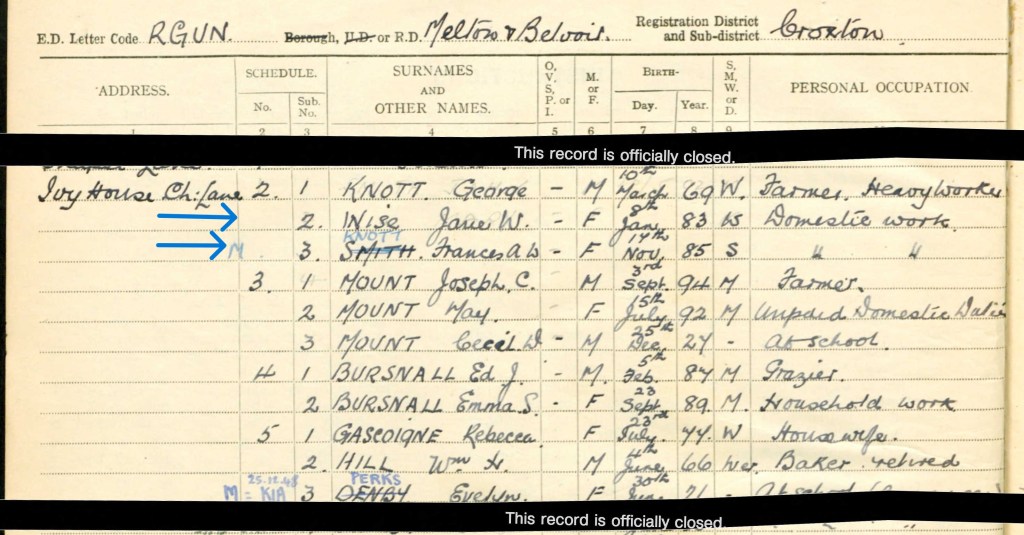 E.D. Letter Code RGUN. Borough, U.D. or R.D. Melton & Belvoir. Registration District and Sub-district Croxton.
ADDRESS. SCHEDULE. No. Sub. No. SURNAMES AND OTHER NAMES. O, V, S, P. or I. M. or F. BIRTH- Day. Year. S, M, W. or D. PERSONAL OCCUPATION
1 2 3 4 5 6 7 8 9
This record is officially closed.
Ivy House Ch: Lane 2. 1 KNOTT. George - M 10th March 69 W. Farmer. Heavy Worker
2. Jane W. - F 8th Jan. 83 W Domestic work.
KNOTT
M 3. SMITH. Frances A W - F 14th Nov. 85 S " "
3. 1 MOUNT Joseph. C. M 3rd Sept. 94 M Farmer.
2 MOUNT May. F 15th July. 92 M Unpaid Domestic Duties
3 MOUNT Cecil D - M 25th Dec. 27 - At school.
4 1 BURSNALL Ed. J. - M. 5th Feb. 87 M Grazier.
2 BURSNALL Emma S. - F 23 Sept. 89. M. Household work
5 1 GASCOIGNE Rebecca. F 23rd July. 77. W Housewife.
2. HILL Wm H. M 4th June 66 Baker retired
25.12.48 PERKS
M = KIA 3 DENBY Evelyn. F 30th - At school
This record is officially closed.